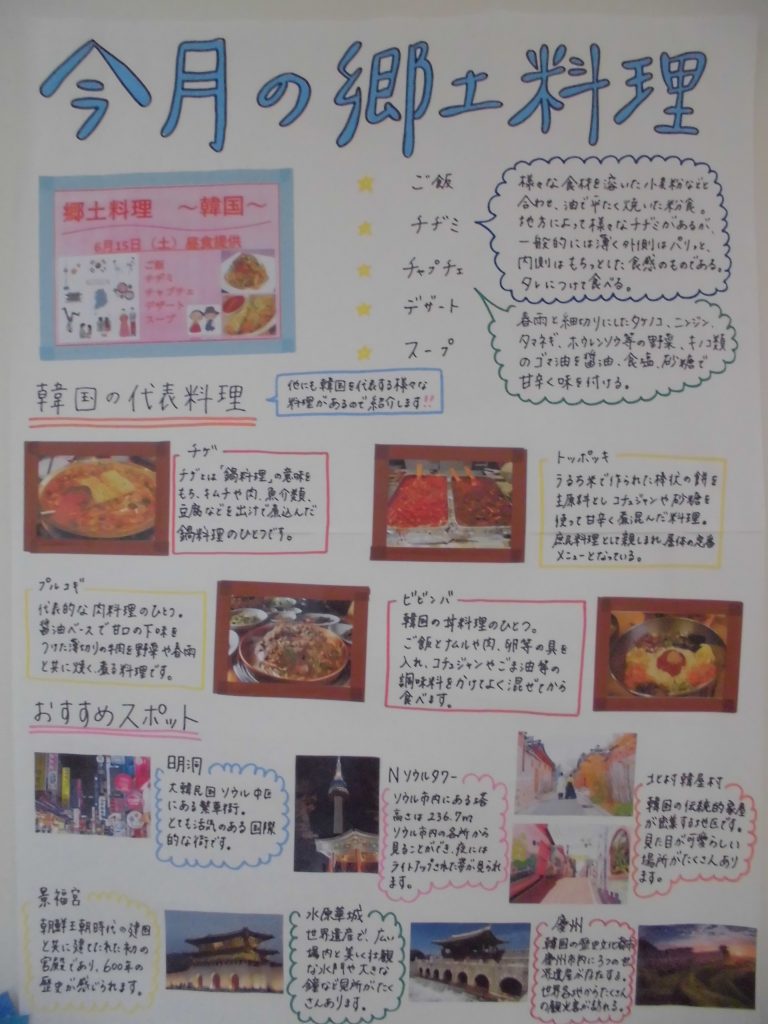 今月の郷土料理
郷土料理 ～韓国～
6月15日（土）昼食提供
ご飯
チヂミ
チャプチェ
デザート
スープ
ご飯
チヂミ
チャプチェ
デザート
スープ
様々な食材を溶いた小麦粉などと
合わせ、油で平たく焼いた粉食。
地方によって様々なチヂミがあるが、
一般的には薄く外側はパリッと、
内側はもちっとした食感のものである。
タレにつけて食べる。
春雨と細切りにしたタケノコ、ニンジン、
タマネギ、ホウレンソウ等の野菜、キノコ類
のゴマ油を醤油、食塩、砂糖で
甘辛く味を付ける。
韓国の代表料理
他にも韓国を代表する様々な
料理があるので紹介します!!
チゲ
チゲとは「鍋料理」の意味を
もち、キムチや肉、魚介類、
豆腐などを出汁で煮込んだ
鍋料理のひとつです。
トッポッキ
うるち米で作られた棒状の餅を
主原料とし コチュジャンや砂糖を
使って甘辛く煮混んだ料理。
庶民料理として親しまれ、屋体の定番
メニューとなっている。
プルコギ
代表的な肉料理のひとつ。
醤油ベースで甘口の下味を
つけた薄切りの牛肉を野菜や春雨
と共に焼く、煮る料理です。
ビビンバ
韓国の丼料理のひとつ。
ご飯とナムルや肉、卵等の具を
入れ、コチュジャンやごま油等の
調味料をかけてよく混ぜてから
食べます。
おすすめスポット
明洞
大韓民国 ソウル 中区
にある繁華街。
とても活気のある国際
的な街です。
Nソウルタワー
ソウル市内にある塔
高さは236.7m
ソウル市内の各所から
見ることができ、夜には
ライトアップされた姿が見られ
ます。
北村韓屋村
韓国の伝統的家屋
が密集する地区です。
見た目が可愛らしい
場所がたくさんあり
ます。
景福宮
朝鮮王朝時代の建国
と共に建てられた初の
宮殿であり、600年の
歴史が感じられます。
水原華城
世界遺産で、広い
場内と美しく壮観
な水門や大きな
鐘など見所がたく
さんあります。
慶州
韓国の歴史文化都市
慶州市内に3つの世
界遺産が存在する。
世界各地からたくさん
の観光客が訪れる。